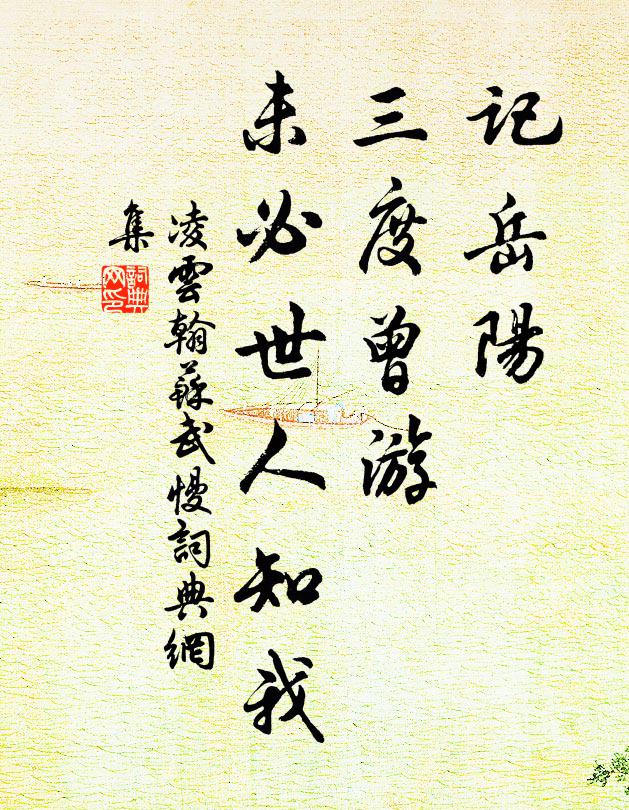 記岳陽
三度曾游
未必世人知我
凌雲翰蘇武慢詞典網
集
詞典
网印